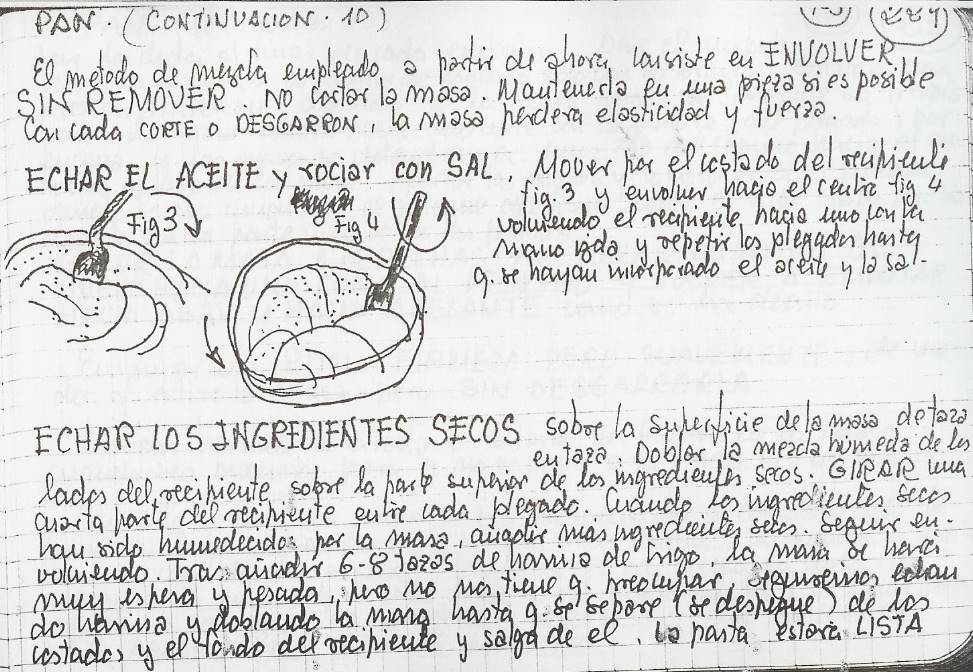 PAN. (CONTINUACION. 10)
229
El método de mezcla empleado, a partir de ahora consiste en ENVOLVER,
SIN REMOVER. No cortar la masa. Mantenerla en una pieza si es posible
Con cada CORTE O DESGARRON, la masa perdera elasticidad y fuerza.
ECHAR EL ACEITE y rociar con SAL. Mover por el costado del recipiente
fig. 3 y envolver hacia el centro fig 4
volviendo el recipiente hacia uno con la
mano izda y repetir los plegados hasta
q. se hayan incorporado el aceite y la sal.
Fig 3
Fig 4
ECHAR LOS INGREDIENTES SECOS sobre la superficie de la masa de taza
en taza. Doblar la mezcla húmeda de los
lados del recipiente sobre la parte superior de los ingredientes secos. GIRAR una
cuarta parte del recipiente entre cada plegado. Cuando los ingredientes secos
han sido humedecidos por la masa, añadir más ingredientes secos. Seguir en-
volviendo. Tras añadir 6-8 tazas de harina de trigo, la masa se hará
muy espesa y pesada, pero no nos tiene q. preocupar, seguiremos echan
do harina y doblando la masa hasta q. se separe (se despegue) de los
costados y el fondo del recipiente y salga de el. La pasta estará LISTA